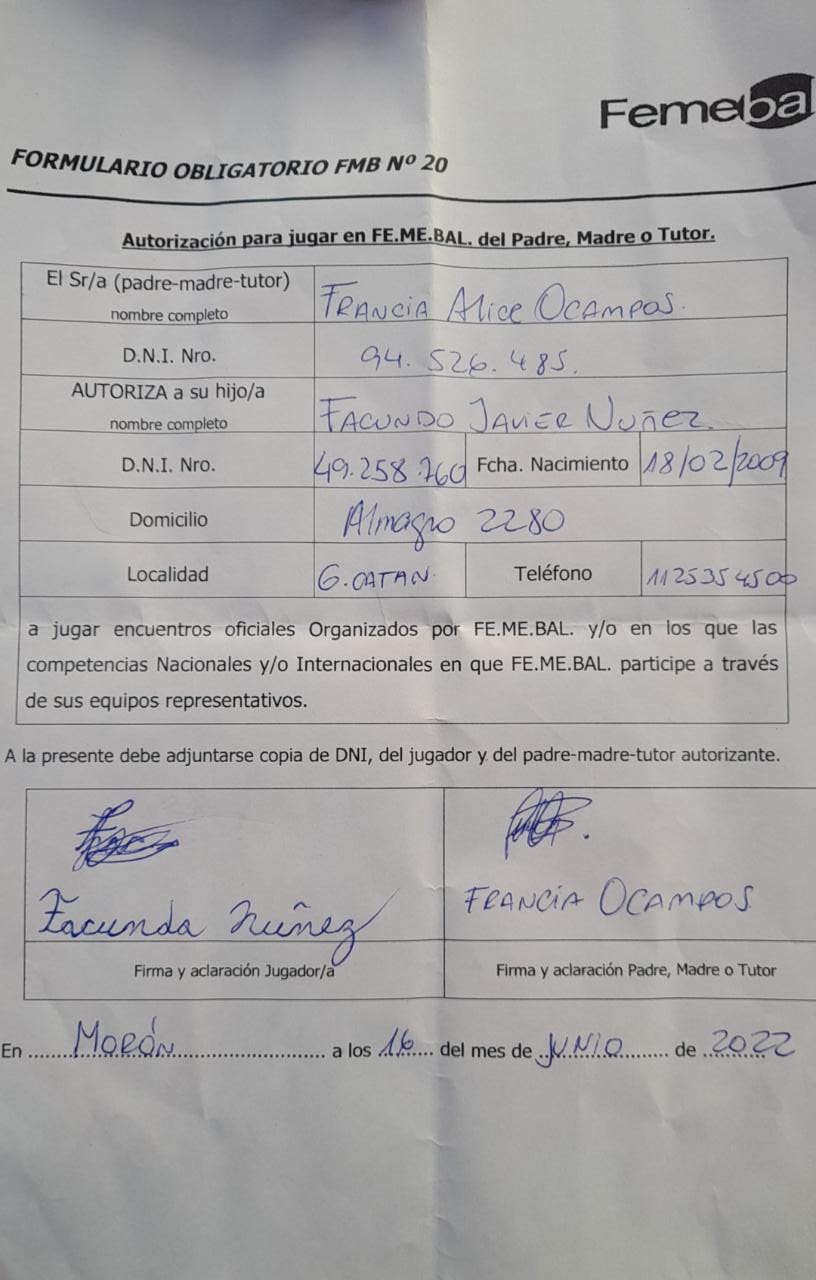 Femeba
FORMULARIO OBLIGATORIO FMB Nº 20
Autorización para jugar en FE.ME.BAL. del Padre, Madre o Tutor.
El Sr/a (padre-madre-tutor)
nombre completo
FRANCIA Alice OCAMPOS.
D.N.I. Nro.
94.526.485.
AUTORIZA a su hijo/a
nombre completo
FACUNDO JAVIER NUÑEZ.
D.N.I. Nro.
49.258.760
Fcha. Nacimiento
18/02/2009
Domicilio
Almagro 2280
Localidad
G.CATAN.
Teléfono
1125354500
a jugar encuentros oficiales Organizados por FE.ME.BAL. y/o en los que las
competencias Nacionales y/o Internacionales en que FE.ME.BAL. participe a través
de sus equipos representativos.
A la presente debe adjuntarse copia de DNI, del jugador y del padre-madre-tutor autorizante.
Facundo Nuñez
FRANCIA OCAMPOS
Firma y aclaración Jugador/a
Firma y aclaración Padre, Madre o Tutor
En MORÓN a los 16 del mes de JUNIO de 2022